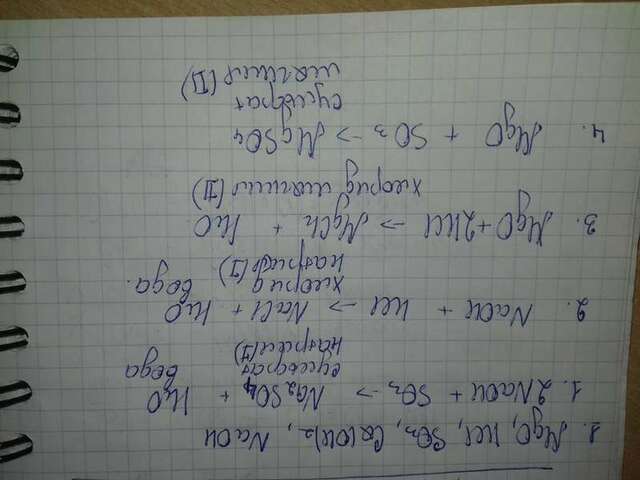 1. MgO, HCl, SO₃, Ca(OH)₂, NaOH
1. 2NaOH + SO₃ -> Na₂SO₄ + H₂O
сульфат вода
натрия (I)
2. NaOH + HCl -> NaCl + H₂O
хлорид вода.
натрия (I)
3. MgO + 2HCl -> MgCl₂ + H₂O
хлорид магния (II)
4. MgO + SO₃ -> MgSO₄
сульфат
магния (II)